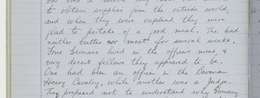 to obtain supplies from the outside world,
and when they were captured they were
glad to partake of a good meal. We had
neither butter nor meat for several weeks.
Four Germans lived in the officers mess, &
very decent fellows they appeared to be.
One had been an officer in the German
Heavy Cavalry, while another was a Judge.
They professed not to understand why Germany